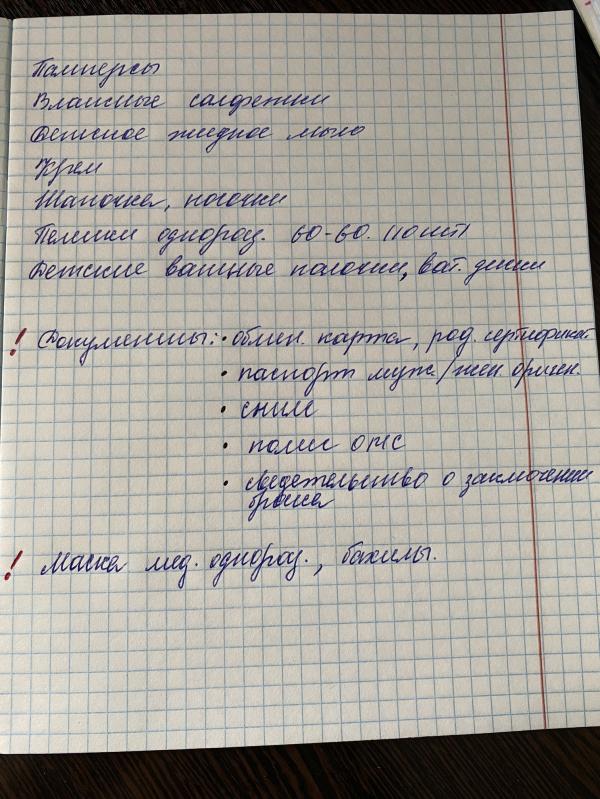 Памперсы
Влажные салфетки
Детское жидкое мыло
Крем
Шапочка, носочки
Пелёнки однораз. 60-60. (10 шт)
Детские ватные палочки, ват. диски
! Документы: • обмен. карта, род. сертификат
• паспорт муж./жен
• снилс
• полис омс
• свидетельство о заключении
брака
! Маска мед. однораз., бахилы.